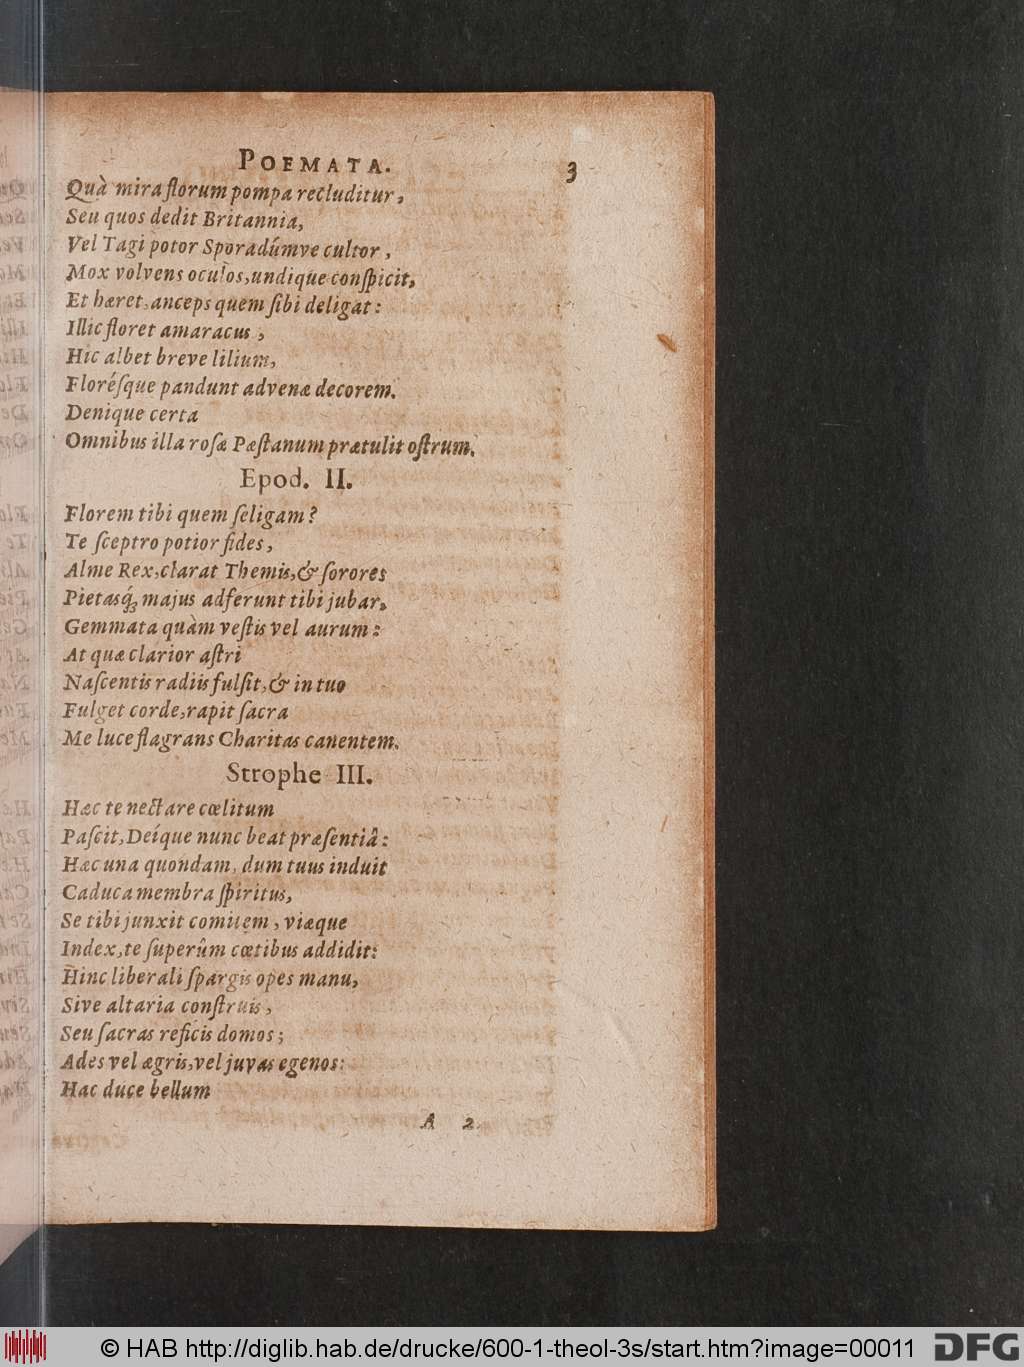 POEMATA. 3
Quà mira florum pompa recluditur,
Seu quos dedit Britannia,
Vel Tagi potor Sporadúmve cultor,
Mox volvens oculos, undique conſpicit,
Et hæret, anceps quem ſibi deligat:
Illic floret amaracus,
Hic albet breve lilium,
Floréſque pandunt advenæ decorem.
Denique certa
Omnibus illa roſæ Pæſtanum prætulit oſtrum.
Epod. II.
Florem tibi quem ſeligam?
Te ſceptro potior fides,
Alme Rex, clarat Themis, & ſorores
Pietasq́; majus adferunt tibi jubar,
Gemmata quàm veſtis vel aurum:
At quæ clarior aſtri
Naſcentis radiis fulſit, & in tuo
Fulget corde, rapit ſacra
Me luce flagrans Charitas canentem.
Strophe III.
Hæc te nectare cœlitum
Paſcit, Deíque nunc beat præſentiâ:
Hæc una quondam, dum tuus induit
Caduca membra ſpiritus,
Se tibi junxit comitem, viæque
Index, te ſuperûm cœtibus addidit:
Hinc liberali ſpargis opes manu,
Sive altaria conſtruis,
Seu ſacras reficis domos;
Ades vel ægris, vel juvas egenos:
Hac duce bellum
A 2
© HAB http://diglib.hab.de/drucke/600-1-theol-3s/start.htm?image=00011 DFG